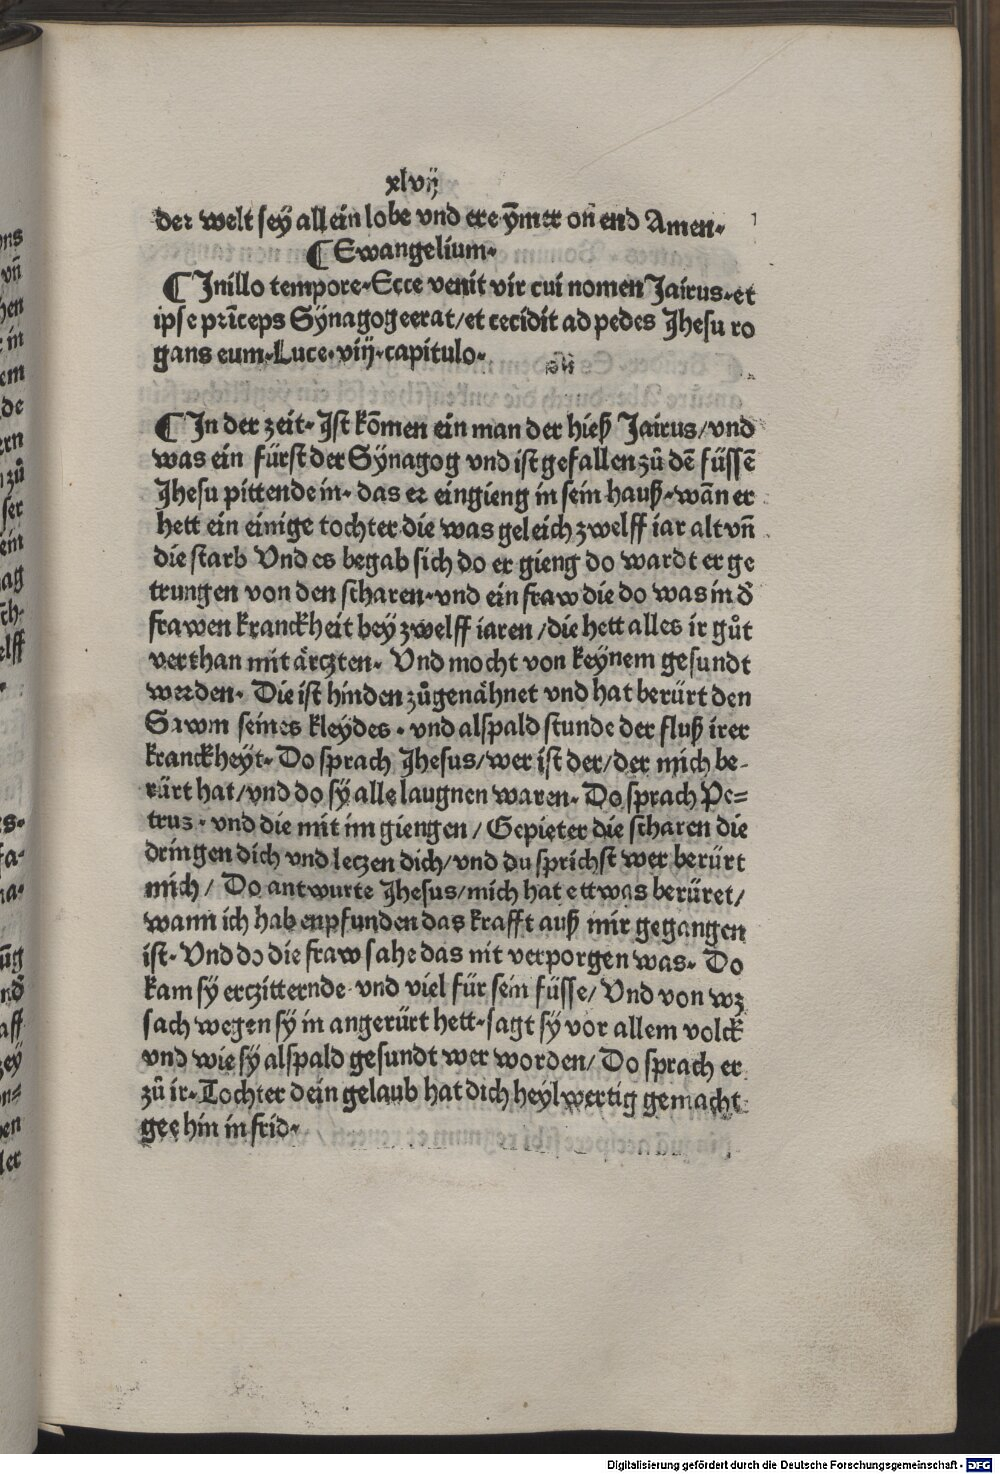 xlvij
der welt sey allein lobe vnd ere ÿmer on̄ end Amen·
¶ Ewangelium·
¶ Inillo tempore·Ecce venit vir cui nomen Jairus·et
ipse prīceps Sÿnagoge erat/et cecidit ad pedes Jhesu ro
gans eum·Luce·viij·capitulo·
¶ In der zeit· Ist kōmen ein man der hieß Jairus/vnd
was ein fürst der Sÿnagog vnd ist gefallen zů dē füssē
Jhesu pittende in· das er eingieng in sein hauß·wān er
hett ein einige tochter die was geleich zwelff iar alt vn̄
die starb Vnd es begab sich do er gieng do wardt er ge
trungen von den scharen·vnd ein fraw die do was in d̓
frawen kranckheit bey zwelff iaren/die hett alles ir gůt
verthan mit ärczten· Vnd mocht von keÿnem gesundt
werden· Die ist hinden zůgenähnet vnd hat berürt den
Sawm seines kleÿdes· vnd alspald stunde der fluß irer
kranckheÿt· Do sprach Jhesus/wer ist der/der mich be-
rürt hat/vnd do sÿ alle laugnen waren· Do sprach Pe=
trus· vnd die mit im giengen/Gepieter die scharen die
dringen dich vnd leczen dich/vnd du sprichst wer berürt
mich/ Do antwurte Jhesus/mich hat ettwas berüret/
wann ich hab enpfunden das krafft auß mir gegangen
ist· Vnd do die fraw sahe das nit verporgen was· Do
kam sÿ erczitternde vnd viel für sein füsse/ Vnd von wz
sach wegen sÿ in angerürt hett·sagt sÿ vor allem volck
vnd wie sÿ alspald gesundt wer worden/ Do sprach er
zů ir·Tochter dein gelaub hat dich heylwertig gemacht
gee hin in frid·
ons
vn̄
hen
in
em
de
ern
zů
ser
ein
ag
ch·
elff
s·
fa-
na·
üg
nd̓
aff
zey
on=
en
ler
Digitalisierung gefördert durch die Deutsche Forschungsgemeinschaft - DFG